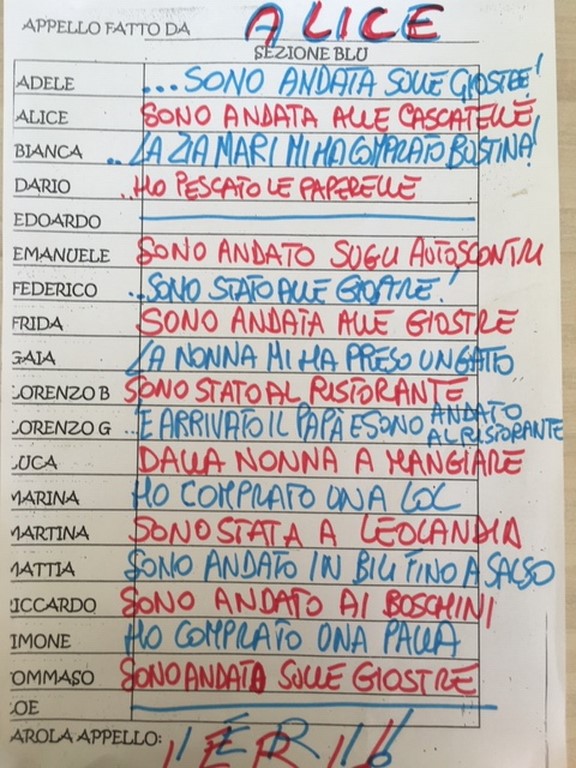 APPELLO FATTO DA ALICE
SEZIONE BLU
ADELE ...SONO ANDATA SULLE GIOSTRE!
ALICE SONO ANDATA ALLE CASCATELLE
BIANCA ..LA ZIA MARI MI HA COMPRATO BUSTINA!
DARIO ..HO PESCATO LE PAPERELLE
EDOARDO
EMANUELE SONO ANDATO SUGLI AUTOSCONTRI
FEDERICO ..SONO STATO ALLE GIOSTRE!
FRIDA SONO ANDATA ALLE GIOSTRE
GAIA LA NONNA MI HA PRESO UN GATTO
LORENZO B SONO STATO AL RISTORANTE
LORENZO G ..E ARRIVATO IL PAPÀ E SONO ANDATO AL RISTORANTE
LUCA DALLA NONNA A MANGIARE
MARINA HO COMPRATO UNA LOL
MARTINA SONO STATA A LEOLANDIA
MATTIA SONO ANDATO IN BICI FINO A SALSO
RICCARDO SONO ANDATO AI BOSCHINI
IMONE HO COMPRATO UNA PALLA
OMMASO SONO ANDATA SULLE GIOSTRE
OE
AROLA APPELLO: IERI